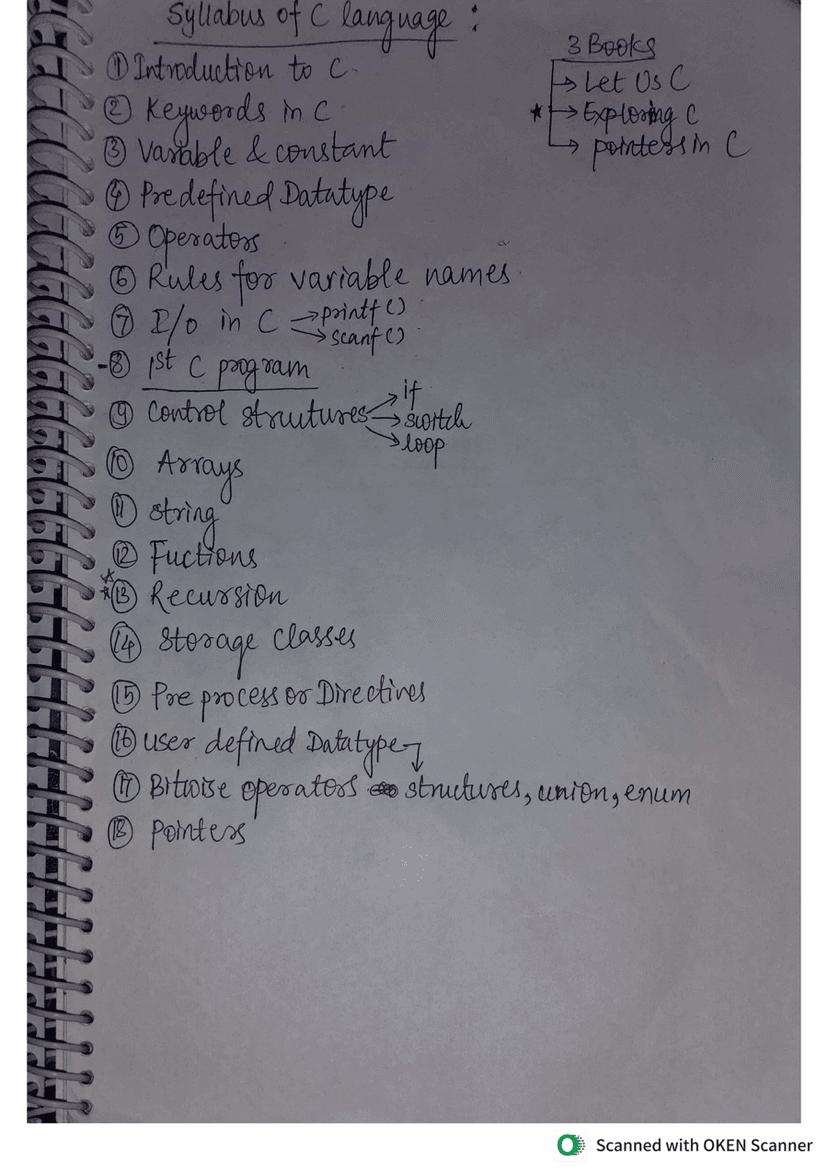 Syllabus of C language :
3 Books
→ Let Us C
★ → Exploring C
→ pointers in C
① Introduction to C.
② Keywords in C.
③ Variable & constant
④ Predefined Datatype
⑤ Operators
⑥ Rules for variable names.
⑦ I/o in C → printf ()
→ scanf ()
-⑧ 1st C program
⑨ Control structures → if
→ switch
→ loop
⑩ Arrays
⑪ string
⑫ Fuctions
⑬ Recursion
⑭ Storage Classes
⑮ Pre processor Directives
⑯ User defined Datatype
⑰ Bitwise operators structures, union, enum
⑱ Pointers
Scanned with OKEN Scanner